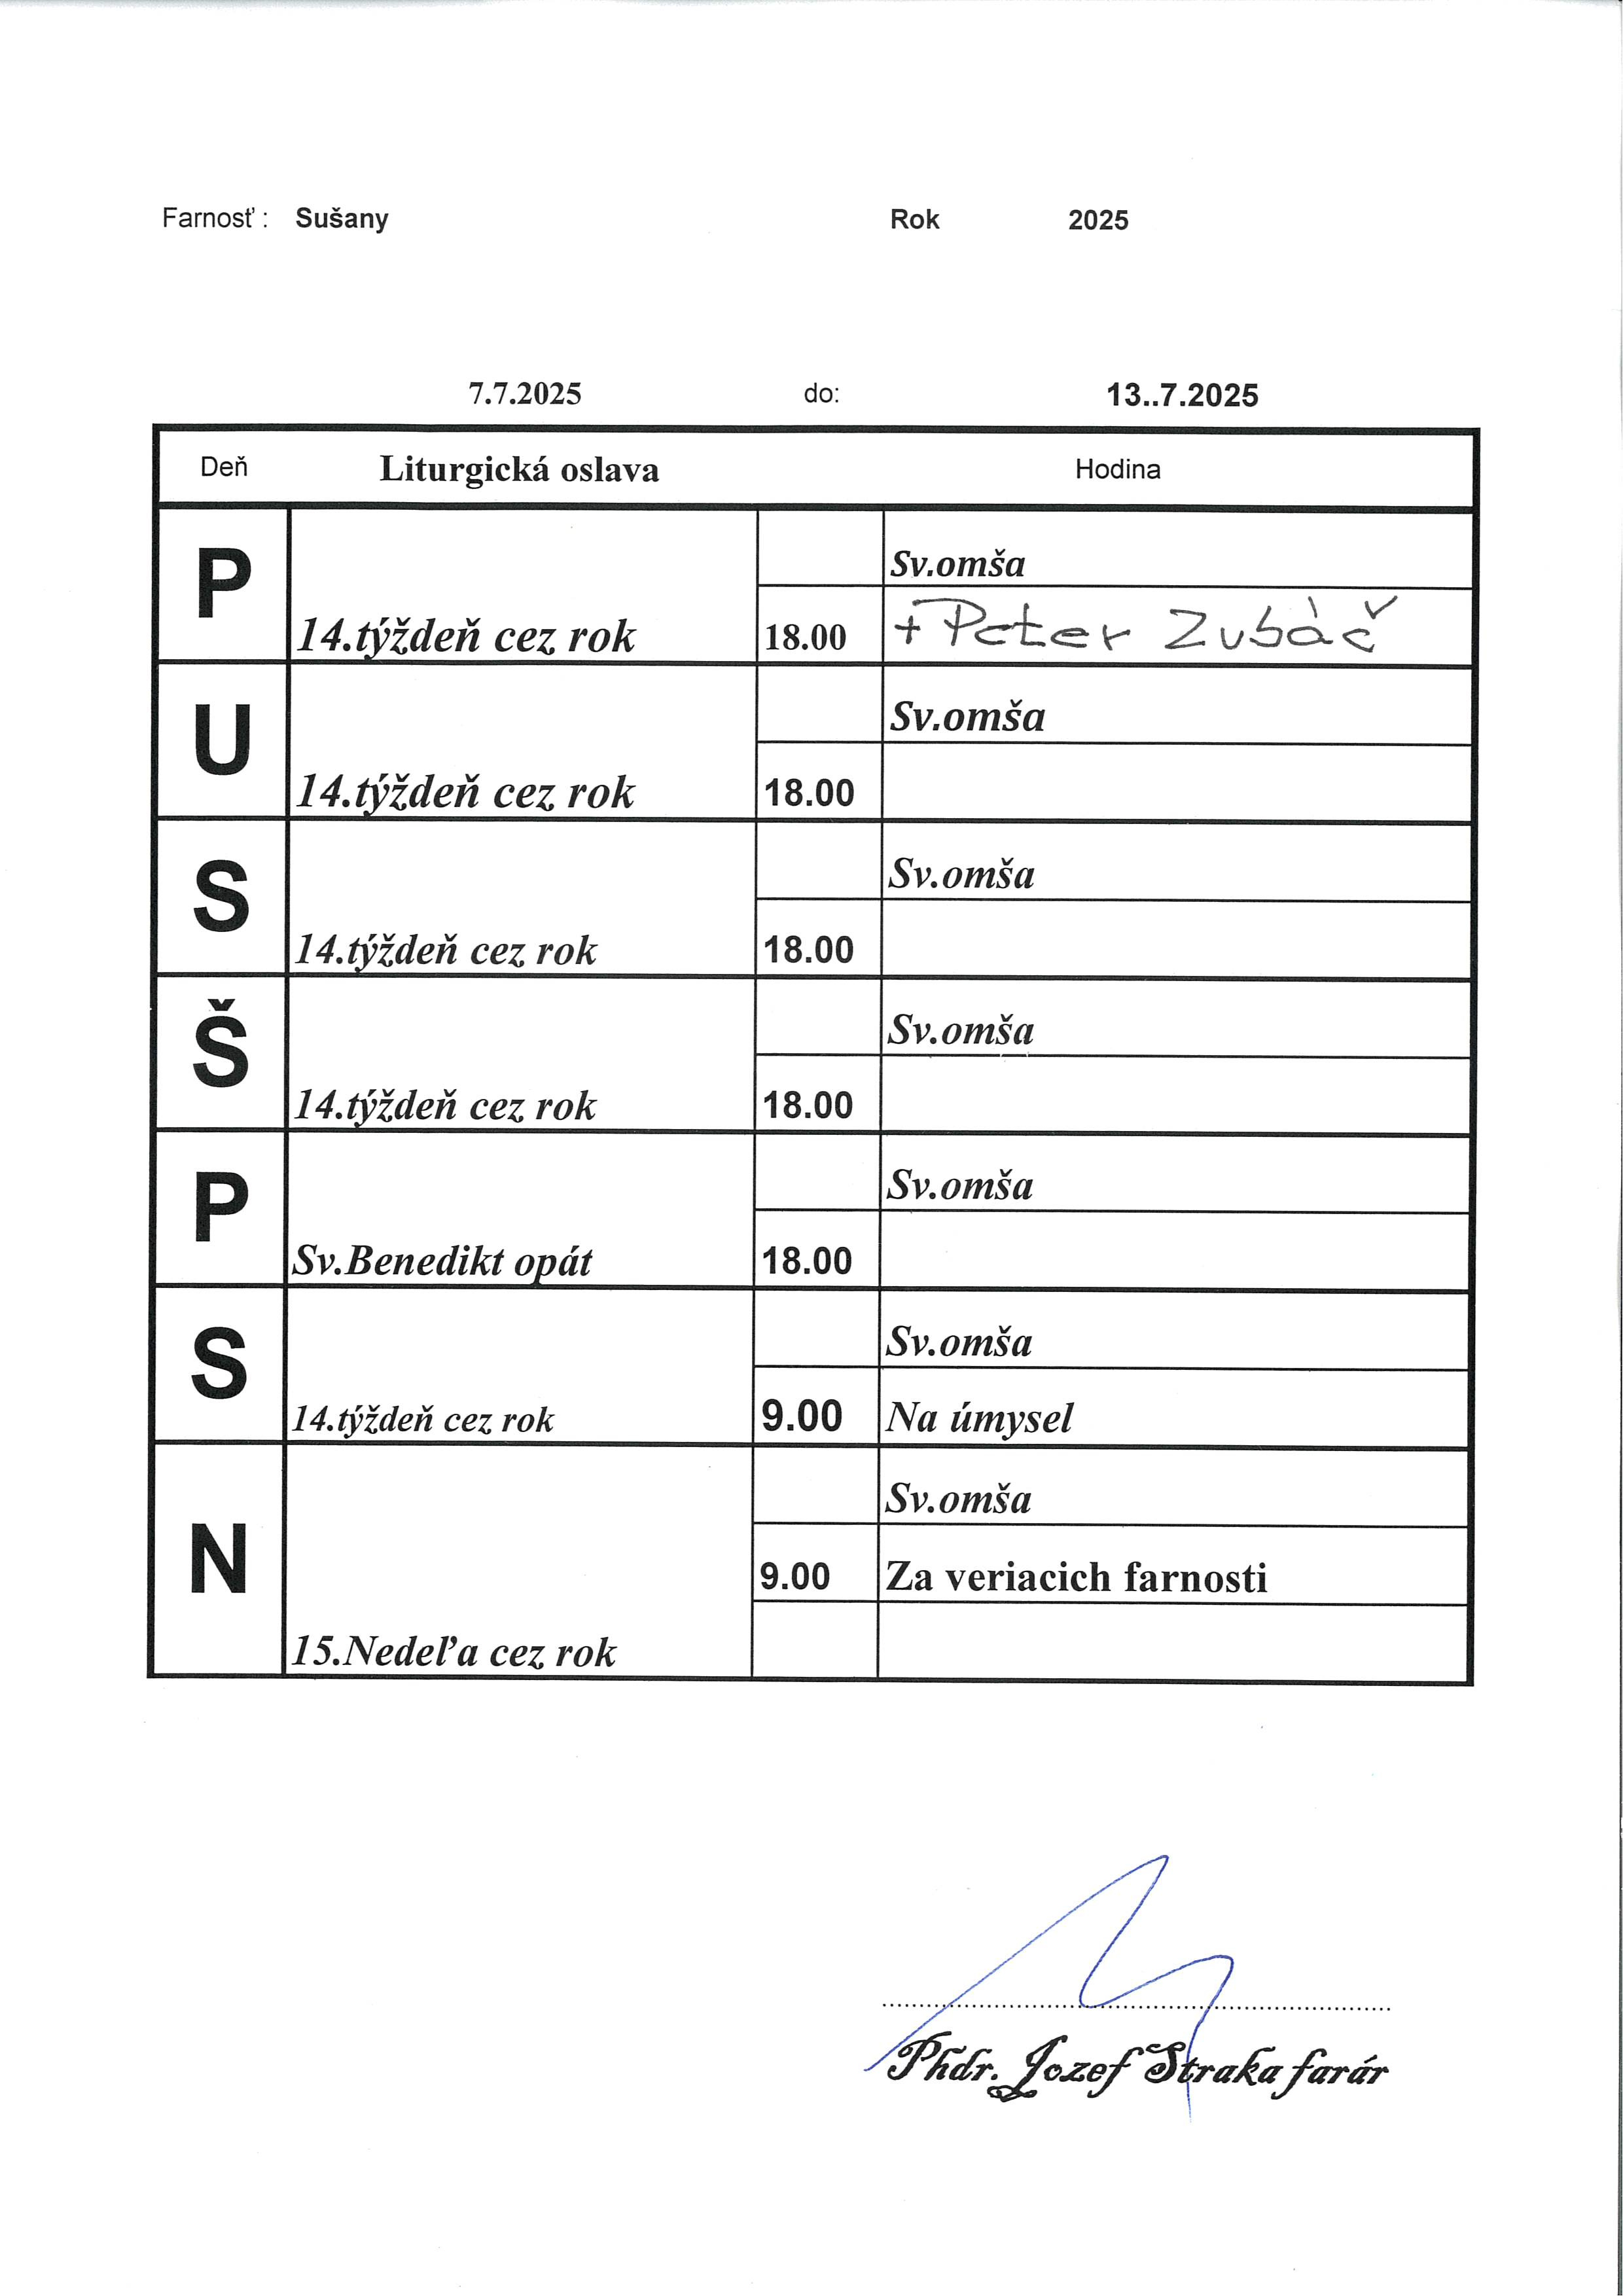 Farnosť : Sušany Rok 2025
7.7.2025 do: 13..7.2025
Deň Liturgická oslava Hodina
P
Sv.omša
14.týždeň cez rok 18.00 + Peter Zubáč
U
Sv.omša
14.týždeň cez rok 18.00
S
Sv.omša
14.týždeň cez rok 18.00
Š
Sv.omša
14.týždeň cez rok 18.00
P
Sv.omša
Sv.Benedikt opát 18.00
S
Sv.omša
14.týždeň cez rok 9.00 Na úmysel
N
Sv.omša
9.00 Za veriacich farnosti
15.Nedeľa cez rok
Phdr. Jozef Straka farár